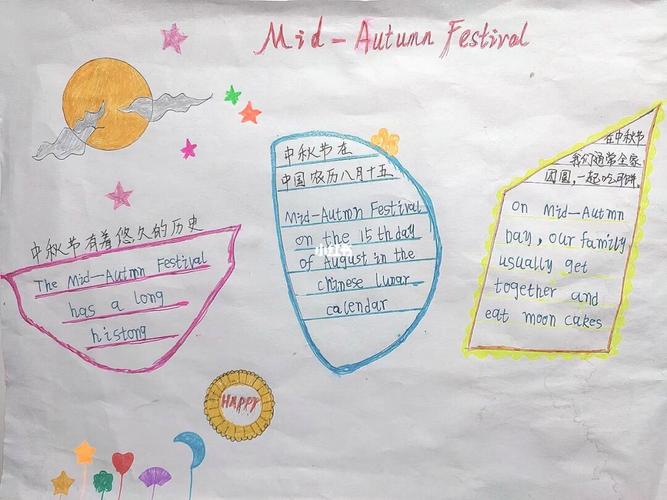 Mid-Autumn Festival
中秋节有着悠久的历史
The Mid-Autmn Festival
has a long
histong
中秋节在
中国农历八月十五
Mid-Autmn Festival
on the 15th day
of August in the
chinese lunar
calendar
在中秋节
我们通常全家
团圆,一起吃月饼.
on Mid-Autmn
Day, our family
usually get
together and
eat moon cakes
HAPPY
小红书